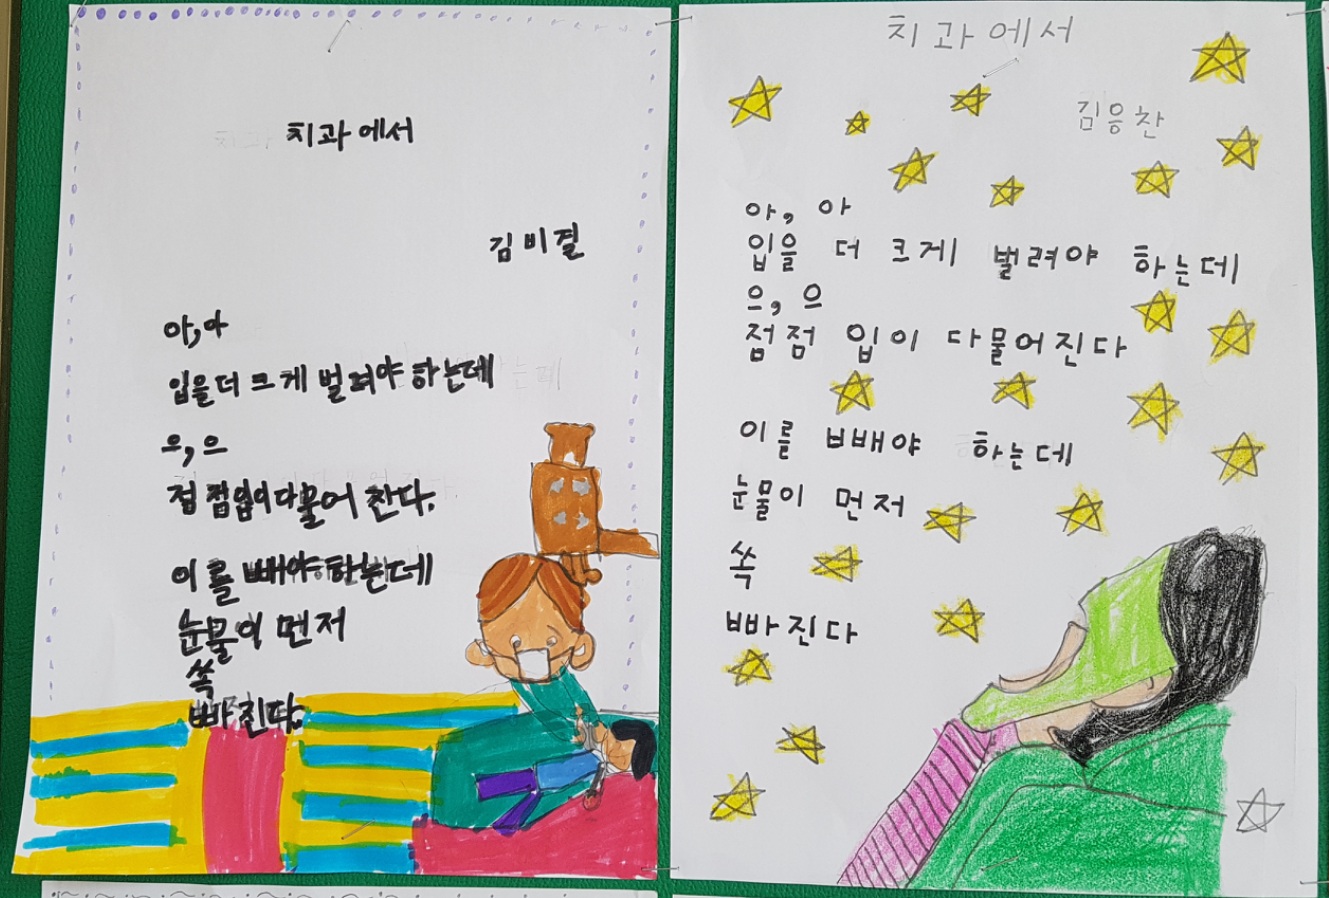 치과에서
김비결
아,아
입을 더 크게 벌려야 하는데
으,으
점점 입이 다물어 진다.
이를 빼야 하는데
눈물이 먼저
쏙
빠진다.
치과에서
김응찬
아, 아
입을 더 크게 벌려야 하는데
으, 으
점점 입이 다물어진다
이를 빼야 하는데
눈물이 먼저
쏙
빠진다